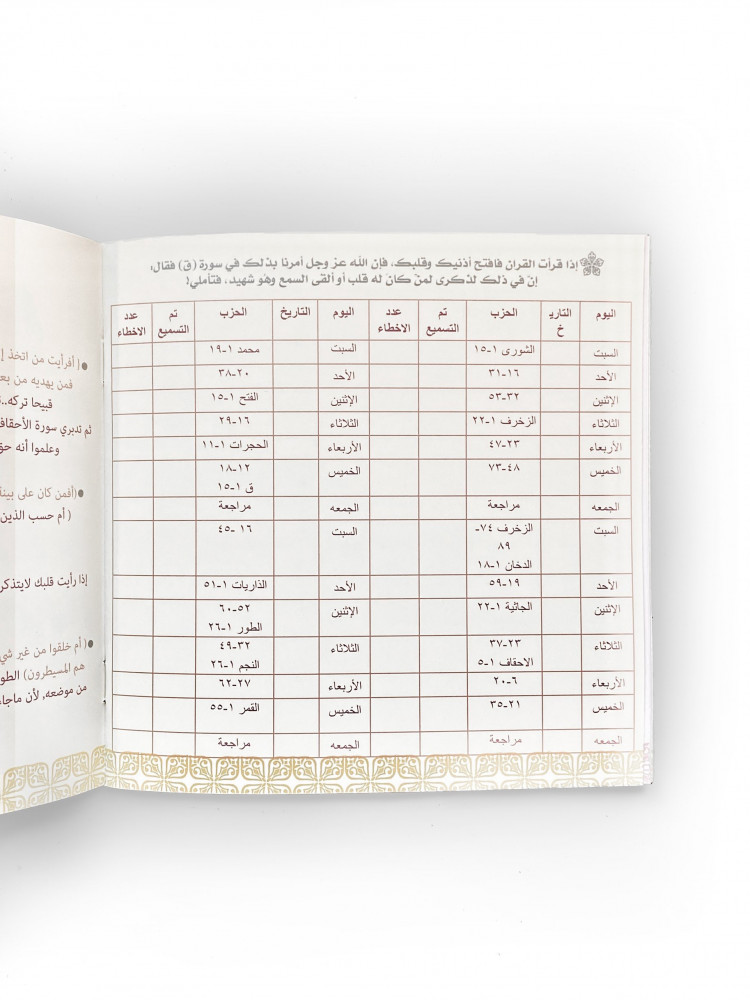 إذا قرأت القرآن فافتح أذنيك وقلبك، فإن الله عز وجل أمرنا بذلك في سورة (ق) فقال؛
إنّ في ذلك لذكرى لمن كان له قلب أو ألقى السمع وهو شهيد، فتأملي!
اليوم التاريخ الحزب تم التسميع عدد الاخطاء اليوم التاريخ الحزب تم التسميع عدد الاخطاء
السبت الشورى ١-١٥ السبت محمد ١-١٩
الأحد ١٦-٣١ الأحد ٢٠-٣٨
الإثنين ٣٢-٥٣ الإثنين الفتح ١-١٥
الثلاثاء الزخرف ١-٢٢ الثلاثاء ١٦-٢٩
الأربعاء ٢٣-٤٧ الأربعاء الحجرات ١-١١
الخميس ٤٨-٧٣ الخميس ١٢-١٨
ق ١-١٥
الجمعه مراجعة الجمعه مراجعة
السبت الزخرف ٧٤- السبت ١٦ -٤٥
٨٩
الدخان ١-١٨
الأحد ١٩-٥٩ الأحد الذاريات ١-٥١
الإثنين الجاثية ١-٢٢ الإثنين ٥٢-٦٠
الطور ١-٢٦
الثلاثاء ٢٣-٣٧ الثلاثاء ٣٢-٤٩
الاحقاف ١-٥ النجم ١-٢٦
الأربعاء ٦-٢٠ الأربعاء ٢٧-٦٢
الخميس ٢١-٣٥ الخميس القمر ١-٥٥
الجمعه مراجعة الجمعه مراجعة
( أفرأيت من اتخذ
فمن يهديه من بعد
قبيحا تركه..
ثم تدبري سورة الأحقاف
وعلموا أنه حق
(أفمن كان على بينة
( أم حسب الذين
إذا رأيت قلبك لايتذكر
( أم خلقوا من غير شي
هم المسيطرون) الطور
من موضعه, لأن ماجاء